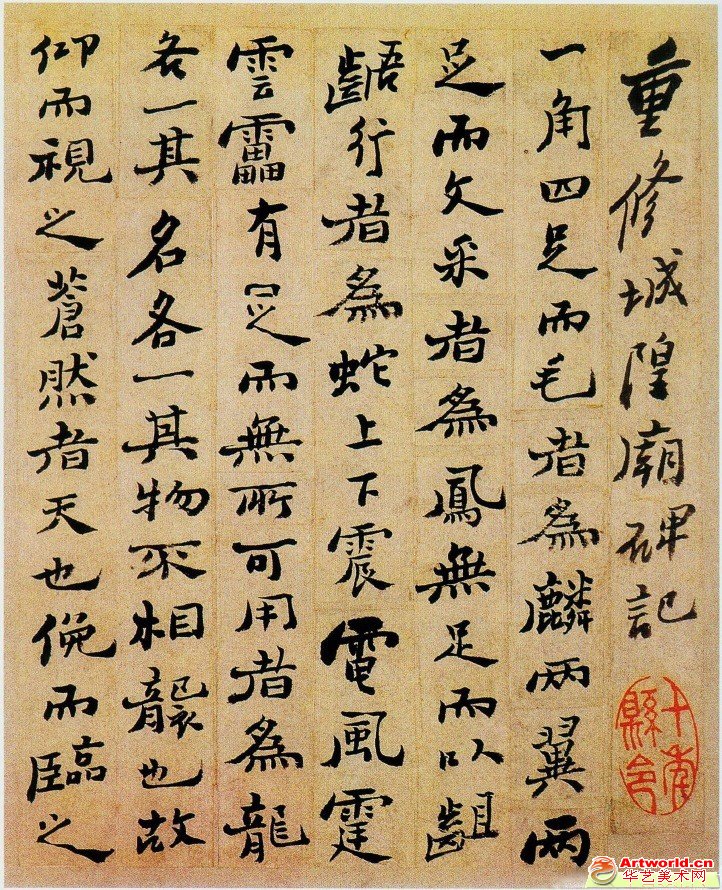 重修城隍廟碑記
一角四足而毛者為麟兩翼兩
足而文采者為鳳無足而以齟
齬行者為蛇上下震電風霆
雲靁有足而無所可用者為龍
各一其名各一其物不相襲也故
仰而視之蒼然者天也俛而臨之
十年縣令
Artworld.cn
华艺美术网